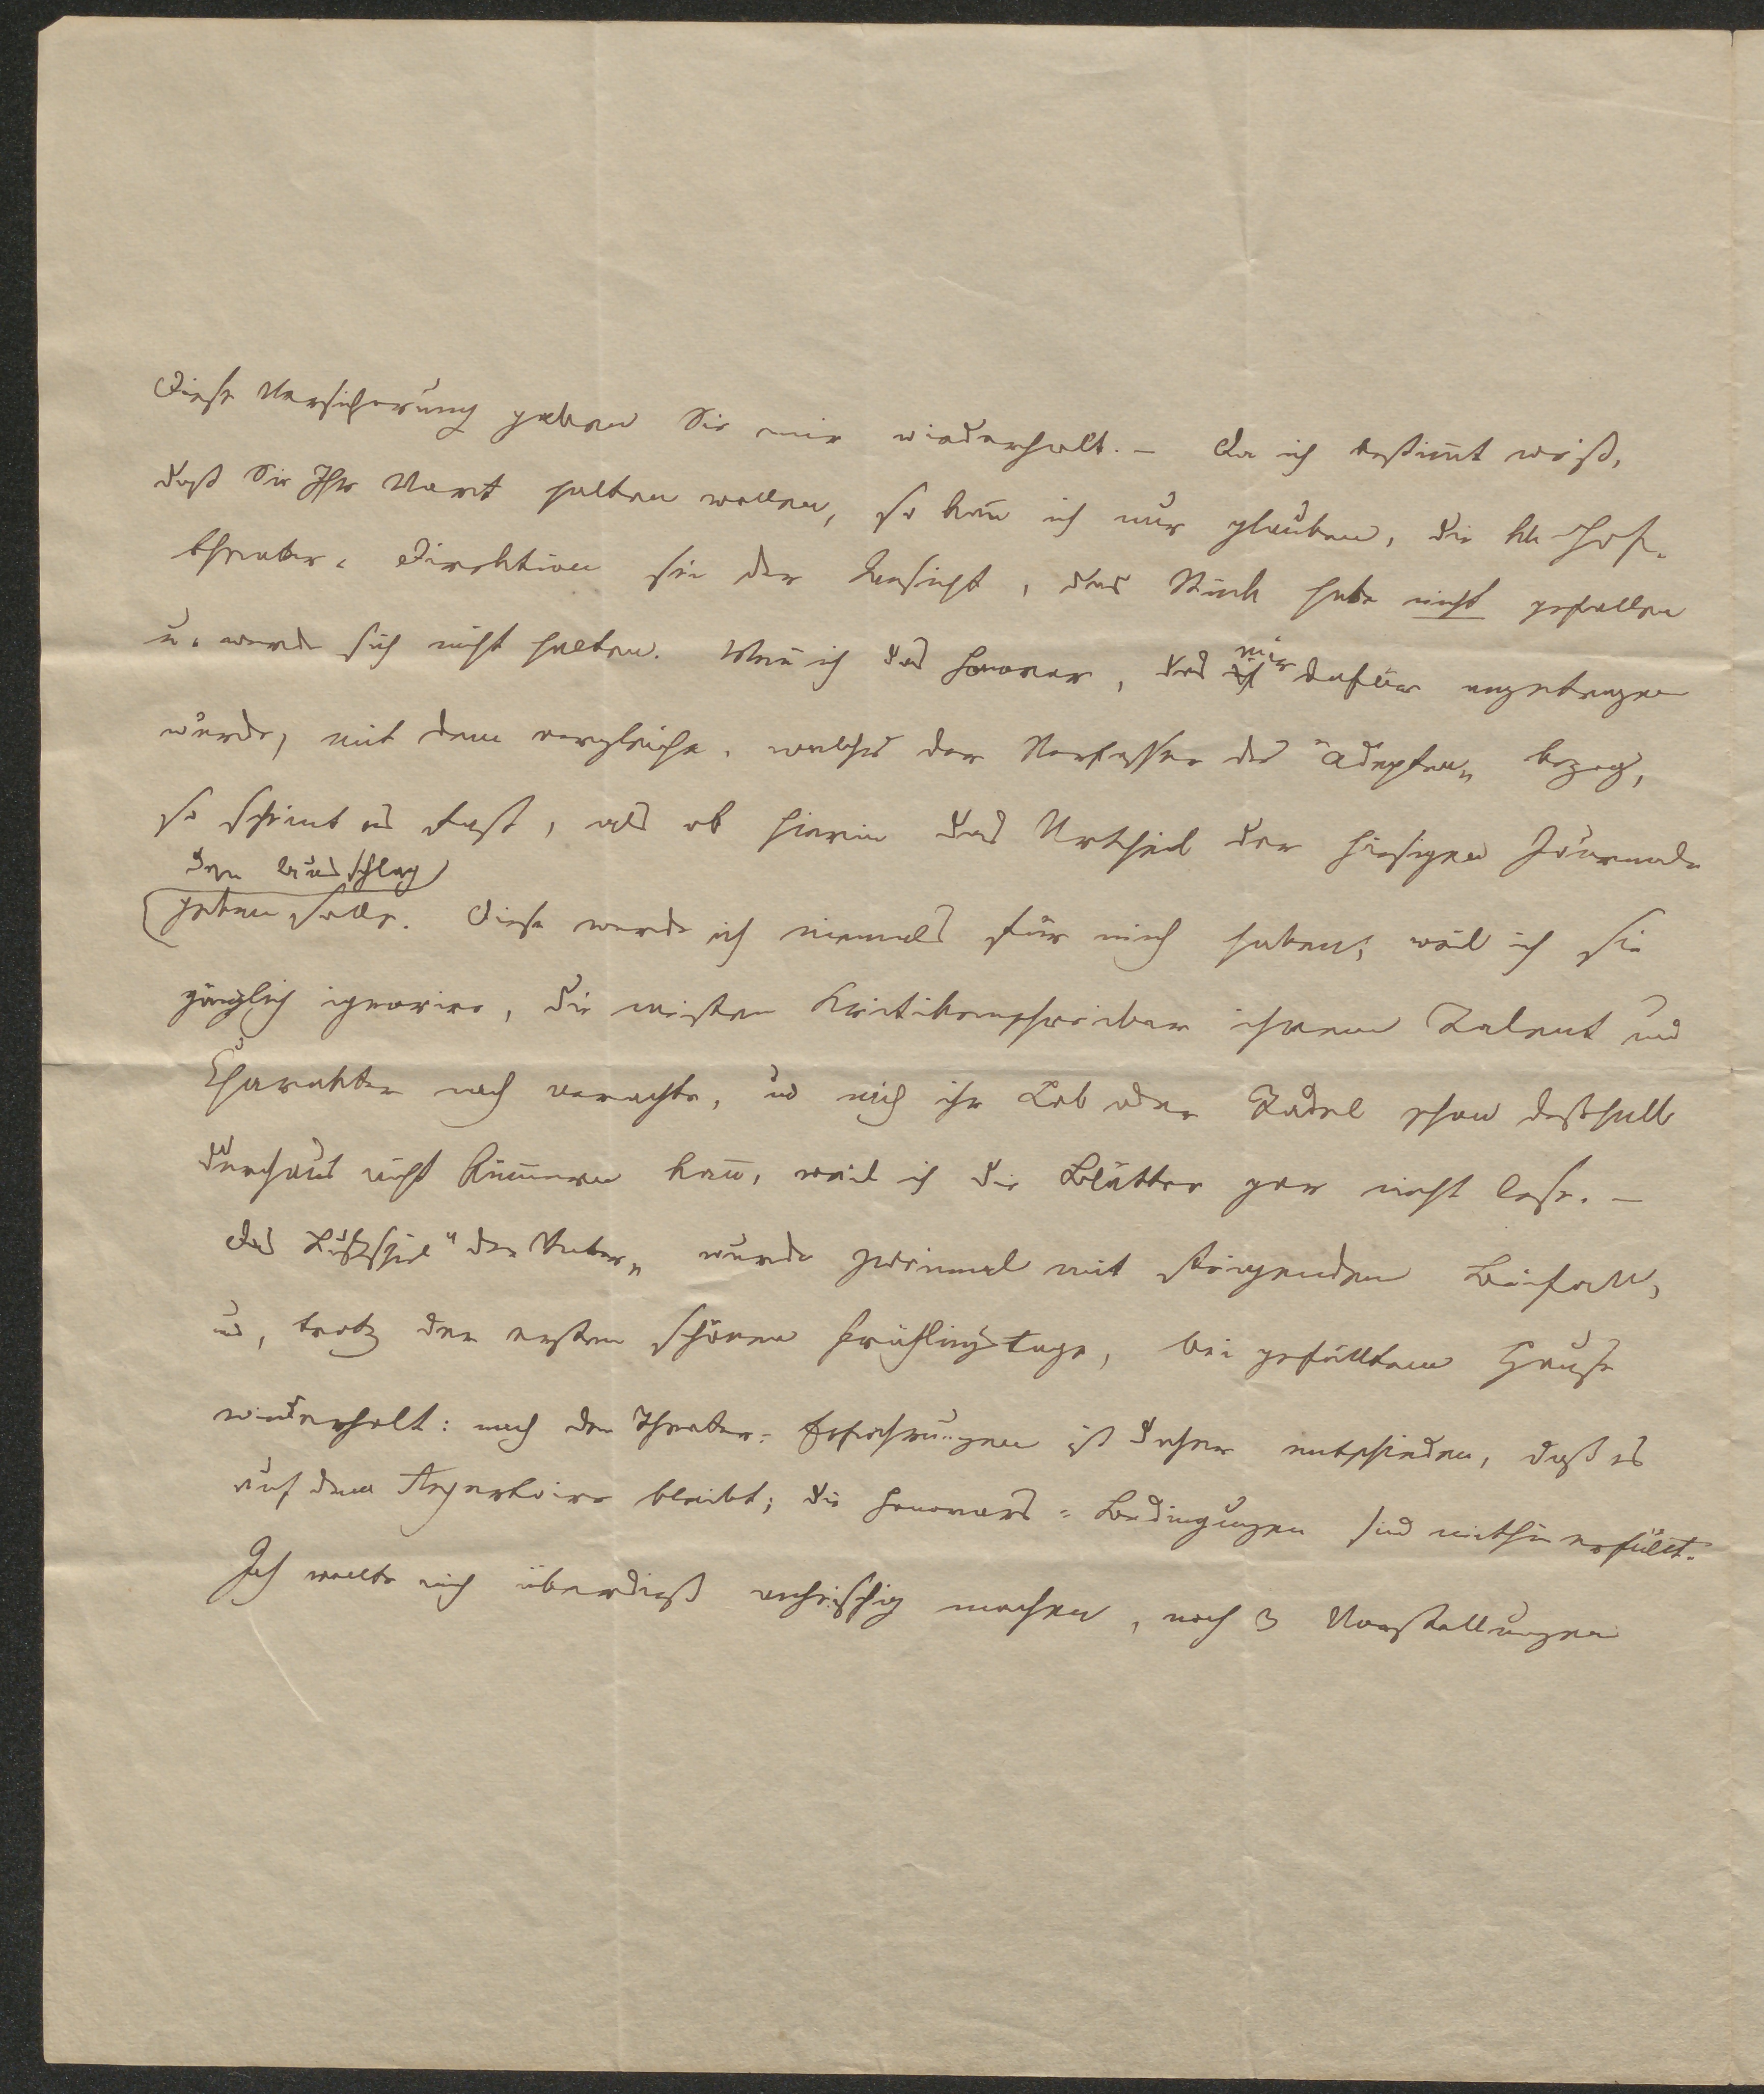 Diese Versicherung gaben Sie mir wiederholt. – Da ich bestim̅t weiß,
daß Sie Ihr Wort halten wollen, so kan̅ ich nur glauben, die kk Hof-
theater-Direktion sei der Ansicht, das Stück habe nicht gefallen
u. werde sich nicht halten. Wen̅ ich das Honorar, das mir dafür angetragen
wurde, mit dem vergleiche, welches der Verfasser des "Adepten" bezog,
so scheint es fast, als ob hierin das Urtheil der hiesigen Journale
den Ausschlag
geben solle. Diese werde ich niemals für mich haben; weil ich sie
gänzlich ignorire, die meisten Kritikenschreiber ihrem Talent und
Charakter nach verachte, und mich ihr Lob oder Tadel schon deßhalb
durchaus nicht küm̅ern kan̅, weil ich die Blätter gar nicht lese. –
Das Lustspiel "Der Vater" wurde zweimal mit steigendem Beifall,
und, trotz der ersten schönen Frühlingstage, bei gefülltem Hause
wiederholt: nach den Theater-Erfahrungen ist daher entschieden, daß es
auf dem Repertoire bleibt; die Honorars-Bedingungen sind mithin erfüllt.
Ich wollte mich überdieß anheischig machen, nach 3 Vorstellungen